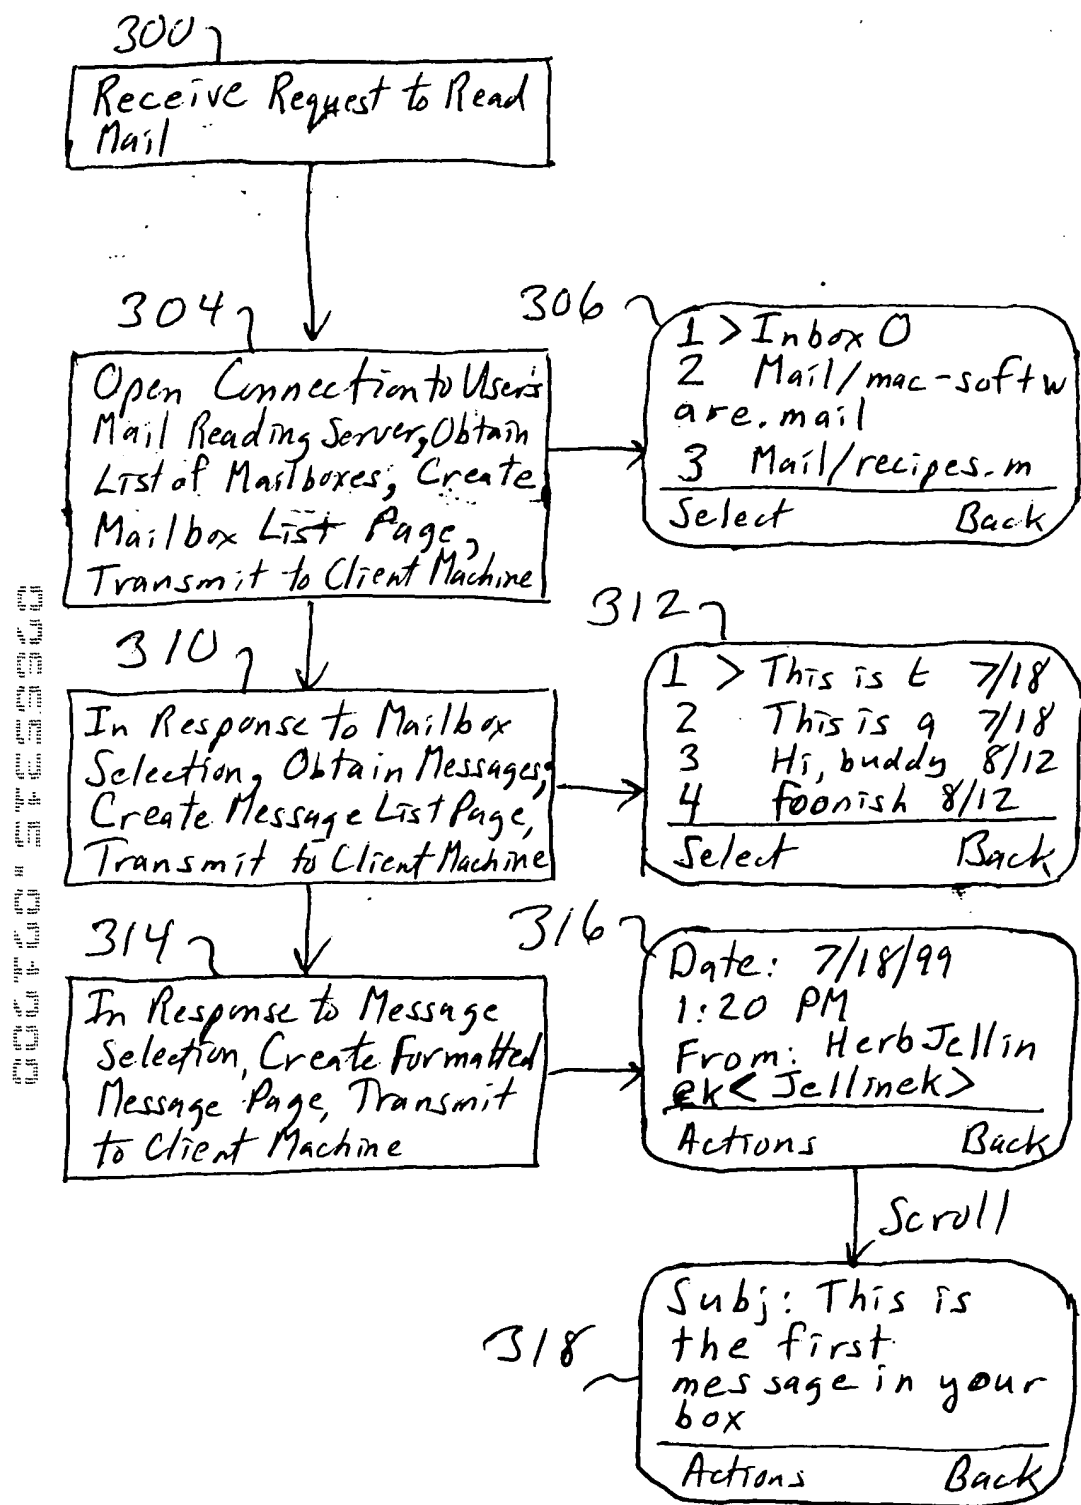 300
Receive Request to Read
Mail
304
Open Connection to User's
Mail Reading Server, Obtain
List of Mailboxes, Create
Mailbox List Page,
Transmit to Client Machine
306
1 > Inbox O
2 Mail/mac-softw
are.mail
3 Mail/recipes.m
Select Back
310
In Response to Mailbox
Selection, Obtain Messages,
Create Message List Page,
Transmit to Client Machine
312
1 > This is t 7/18
2 This is a 7/18
3 Hi, buddy 8/12
4 foonish 8/12
Select Back
314
In Response to Message
Selection, Create Formatted
Message Page, Transmit
to Client Machine
316
Date: 7/18/99
1:20 PM
From: Herb Jellin
ek < Jellinek>
Actions Back
Scroll
318
Subj: This is
the first
message in your
box
Actions Back